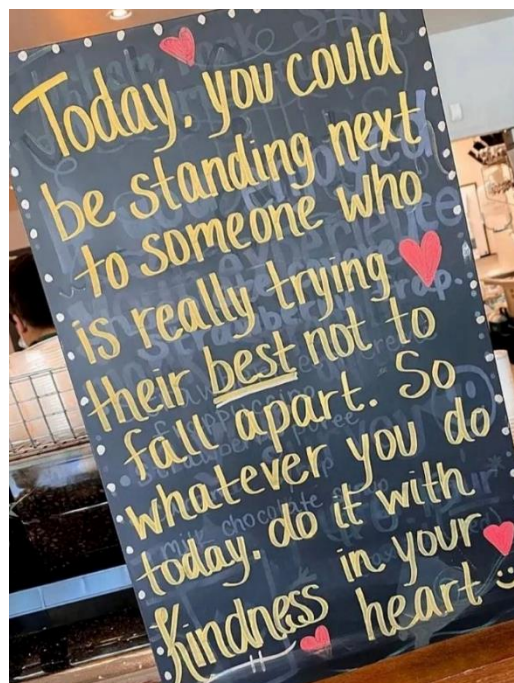 Today, you could
be standing next
to someone who
is really trying
their best not to
fall apart. So
whatever you do
today, do it with
Kindness in your
heart